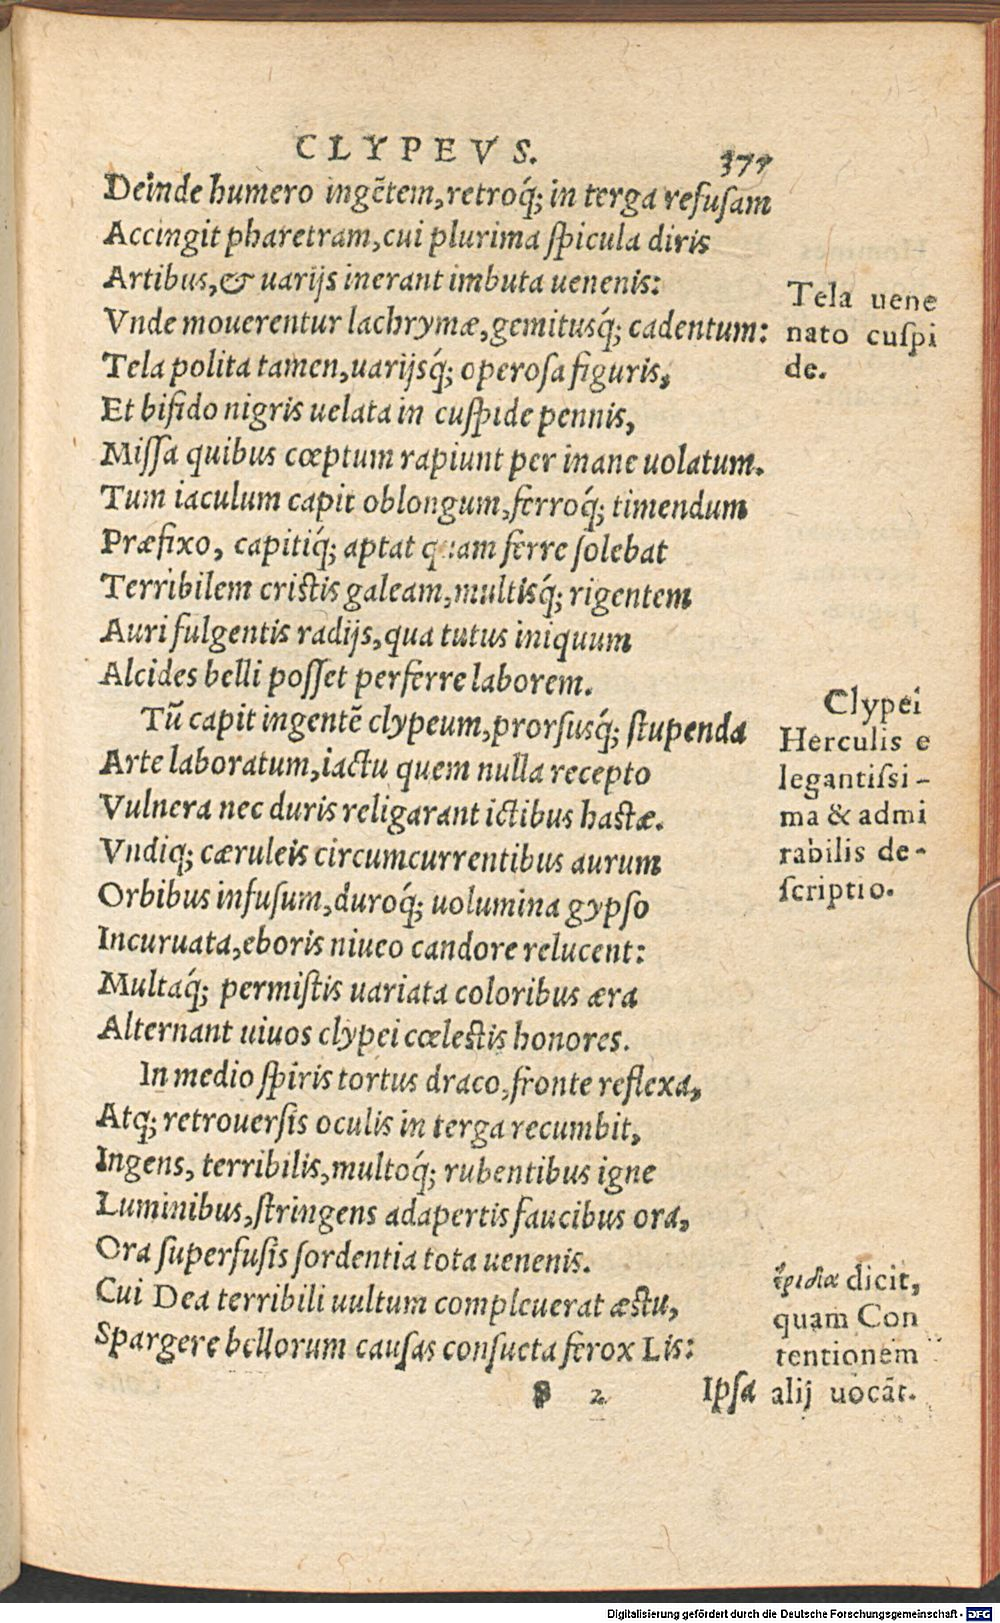 CLYPEVS.
Deinde humero ingẽtem, retroq́; in terga refusam
Accingit pharetram, cui plurima spicula diris
Artibus, & uarijs inerant imbuta uenenis:
Vnde mouerentur lachrymæ, gemitusq́; cadentum:
Tela polita tamen, uarijsq́; operosa figuris,
Et bifido nigris uelata in cuspide pennis,
Missa quibus cœptum rapiunt per inane uolatum.
Tum iaculum capit oblongum, ferroq́; timendum
Præfixo, capitiq́; aptat quam ferre solebat
Terribilem cristis galeam, multisq́; rigentem
Auri fulgentis radijs, qua tutus iniquum
Alcides belli posset perferre laborem.
Tũ capit ingentẽ clypeum, prorsusq́; stupenda
Arte laboratum, iactu quem nulla recepto
Vulnera nec duris religarant ictibus hastæ.
Vndiq; cæruleis circumcurrentibus aurum
Orbibus infusum, duroq́; uolumina gypso
Incuruata, eboris niueo candore relucent:
Multaq́; permistis uariata coloribus æra
Alternant uiuos clypei cœlestis honores.
In medio spiris tortus draco, fronte reflexa,
Atq; retrouersis oculis in terga recumbit,
Ingens, terribilis, multoq́; rubentibus igne
Luminibus, stringens adapertis faucibus ora,
Ora superfusis sordentia tota uenenis.
Cui Dea terribili uultum compleuerat æstu,
Spargere bellorum causas consueta ferox Lis:
2 Ipsa
Tela uene
nato cuspi
de.
Clypei
Herculis e
legantissi-
ma & admi
rabilis de-
scriptio.
dicit,
quam Con
tentionem
alij uocãt.
Digitalisierung gefördert durch die Deutsche Forschungsgemeinschaft - DFG